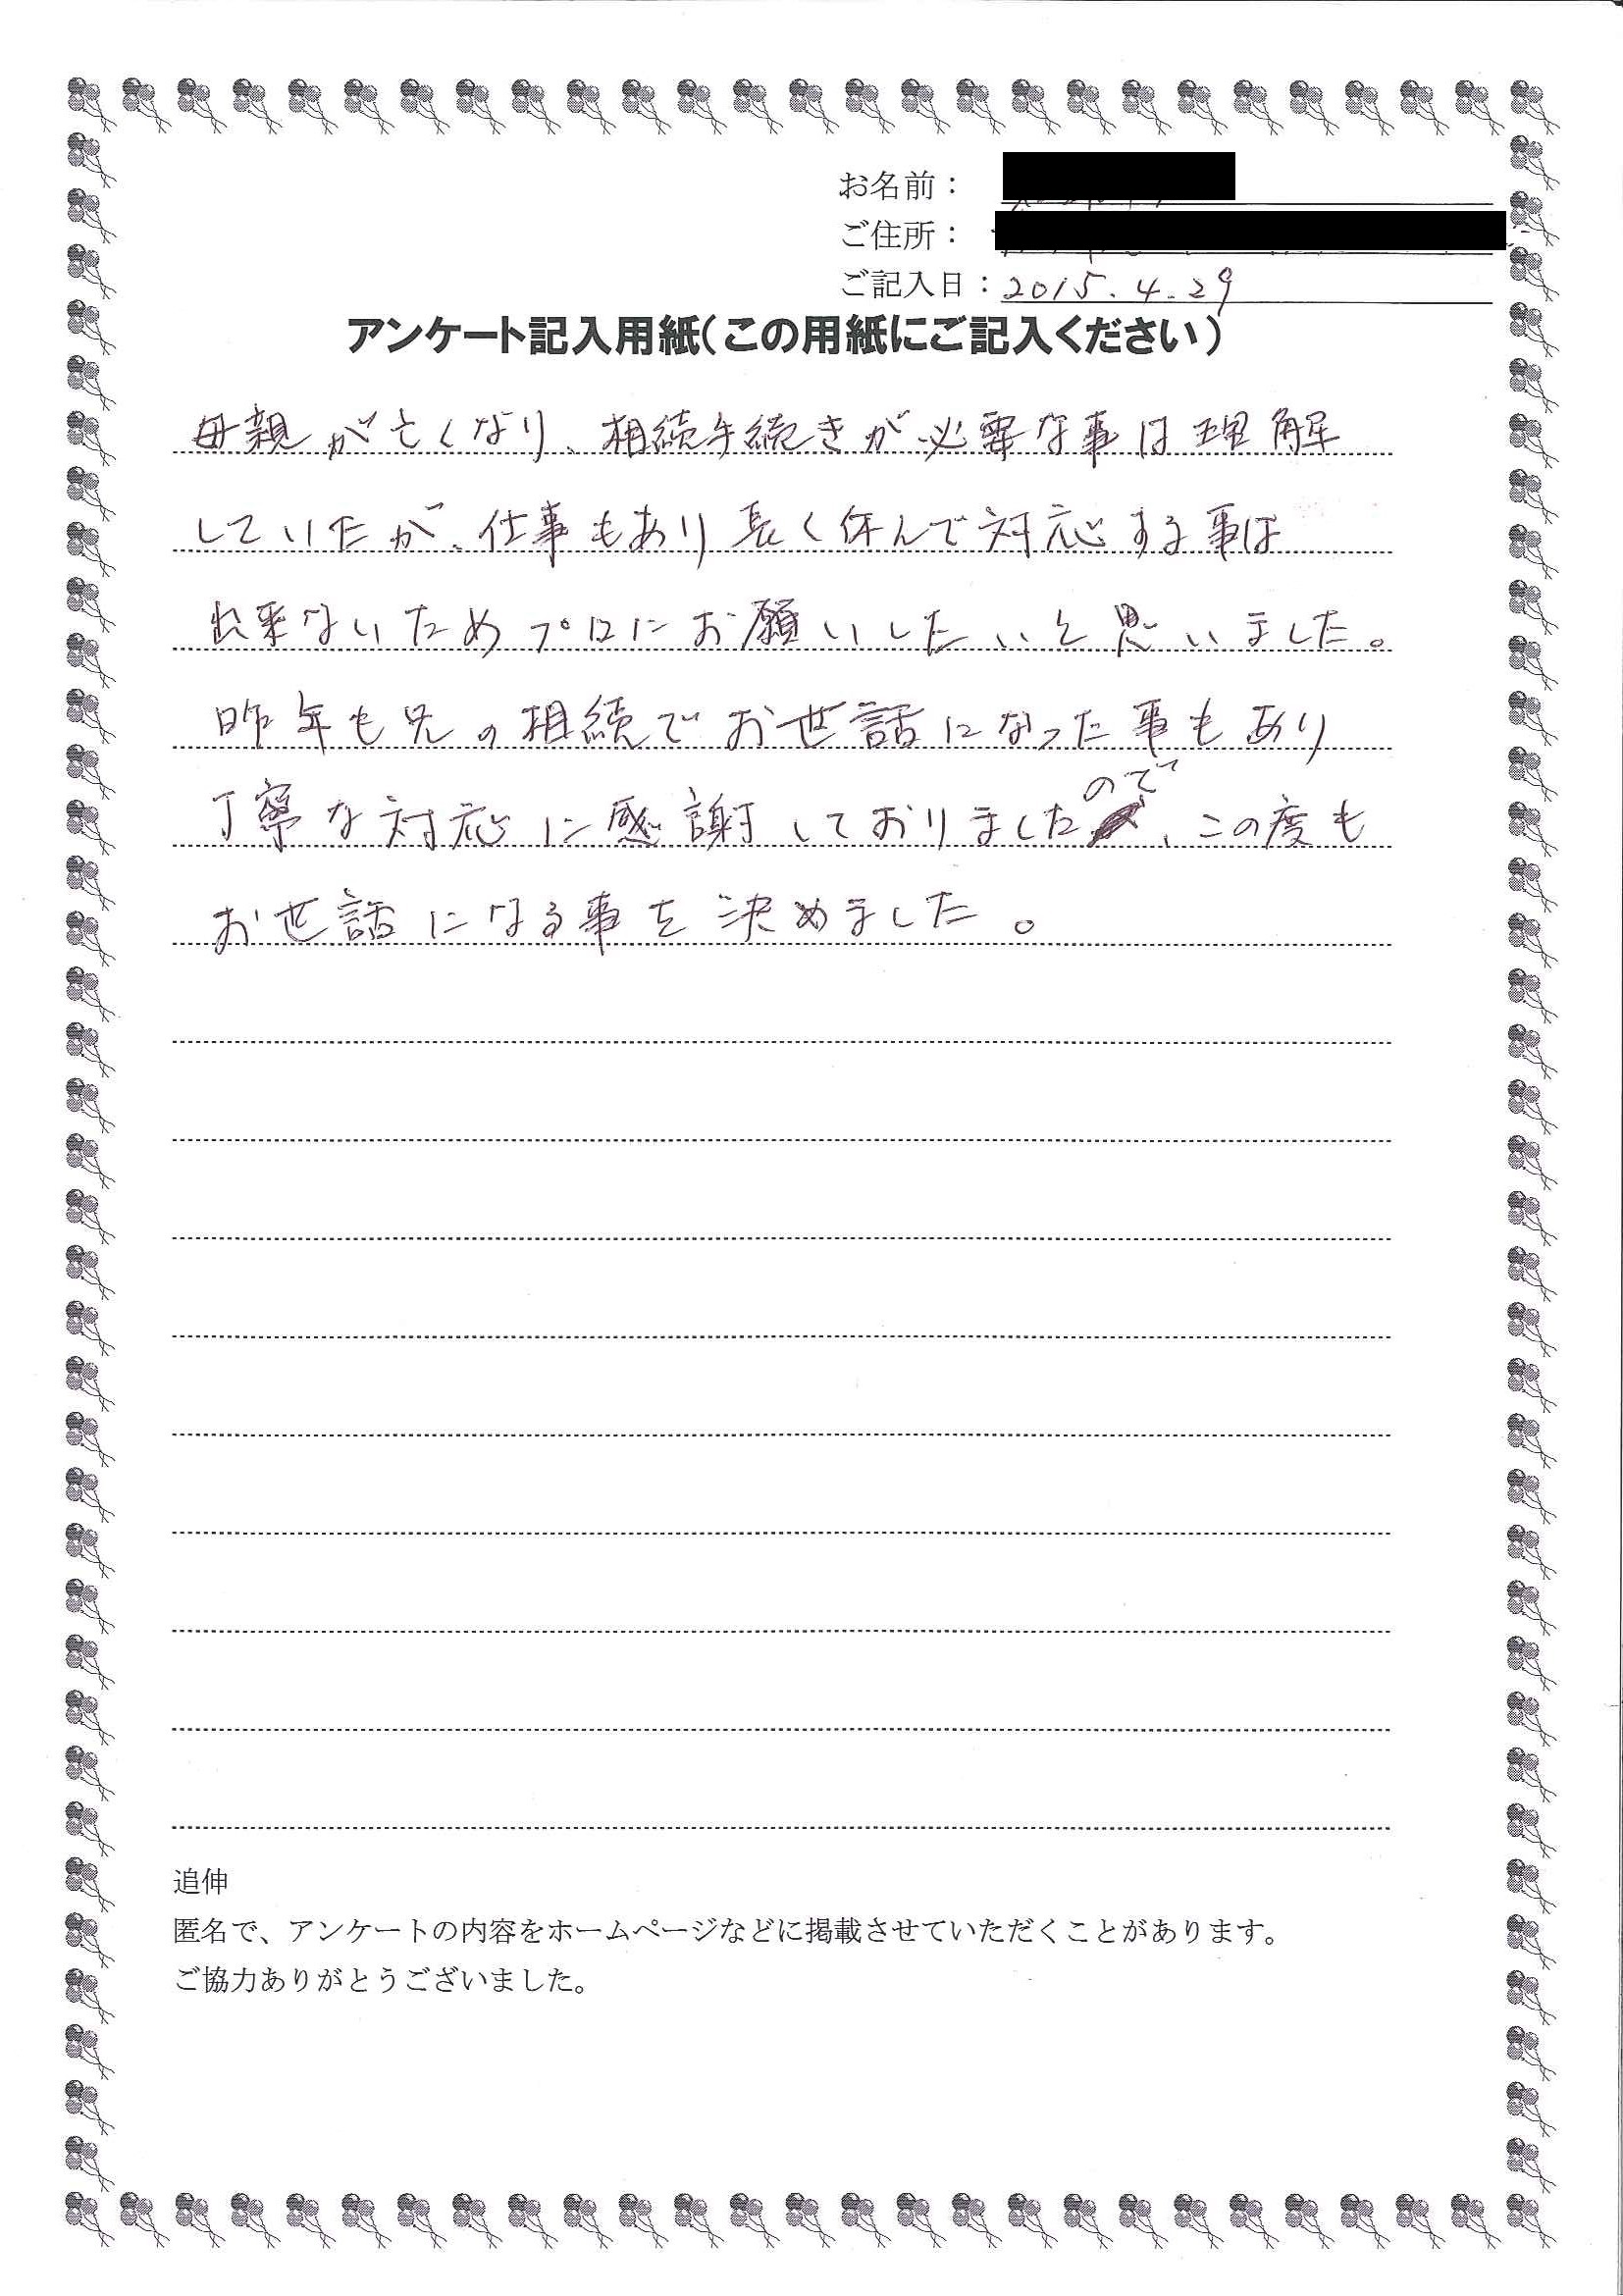 お名前：
ご住所：
ご記入日：2015.4.29
アンケート記入用紙（この用紙にご記入ください）
母親が亡くなり、相続手続きが必要な事は理解
していたが、仕事もあり長く休んで対応する事は
出来ないためプロにお願いしたいと思いました。
昨年も兄の相続でお世話になった事もあり
丁寧な対応に感謝しておりましたので、この度も
お世話になる事を決めました。
追伸
匿名で、アンケートの内容をホームページなどに掲載させていただくことがあります。
ご協力ありがとうございました。